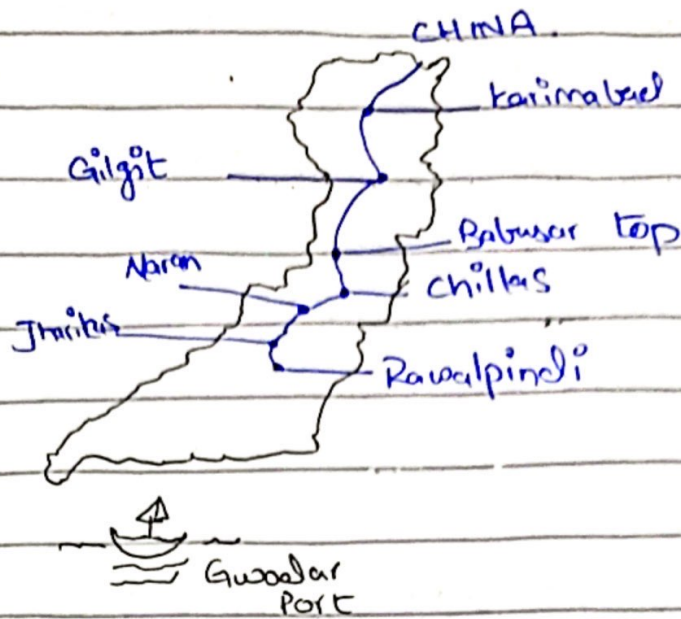 CHINA.
Karimabad
Gilgit
Babusar top
Naran
Chillas
Rawalpindi
Gwadar
Port